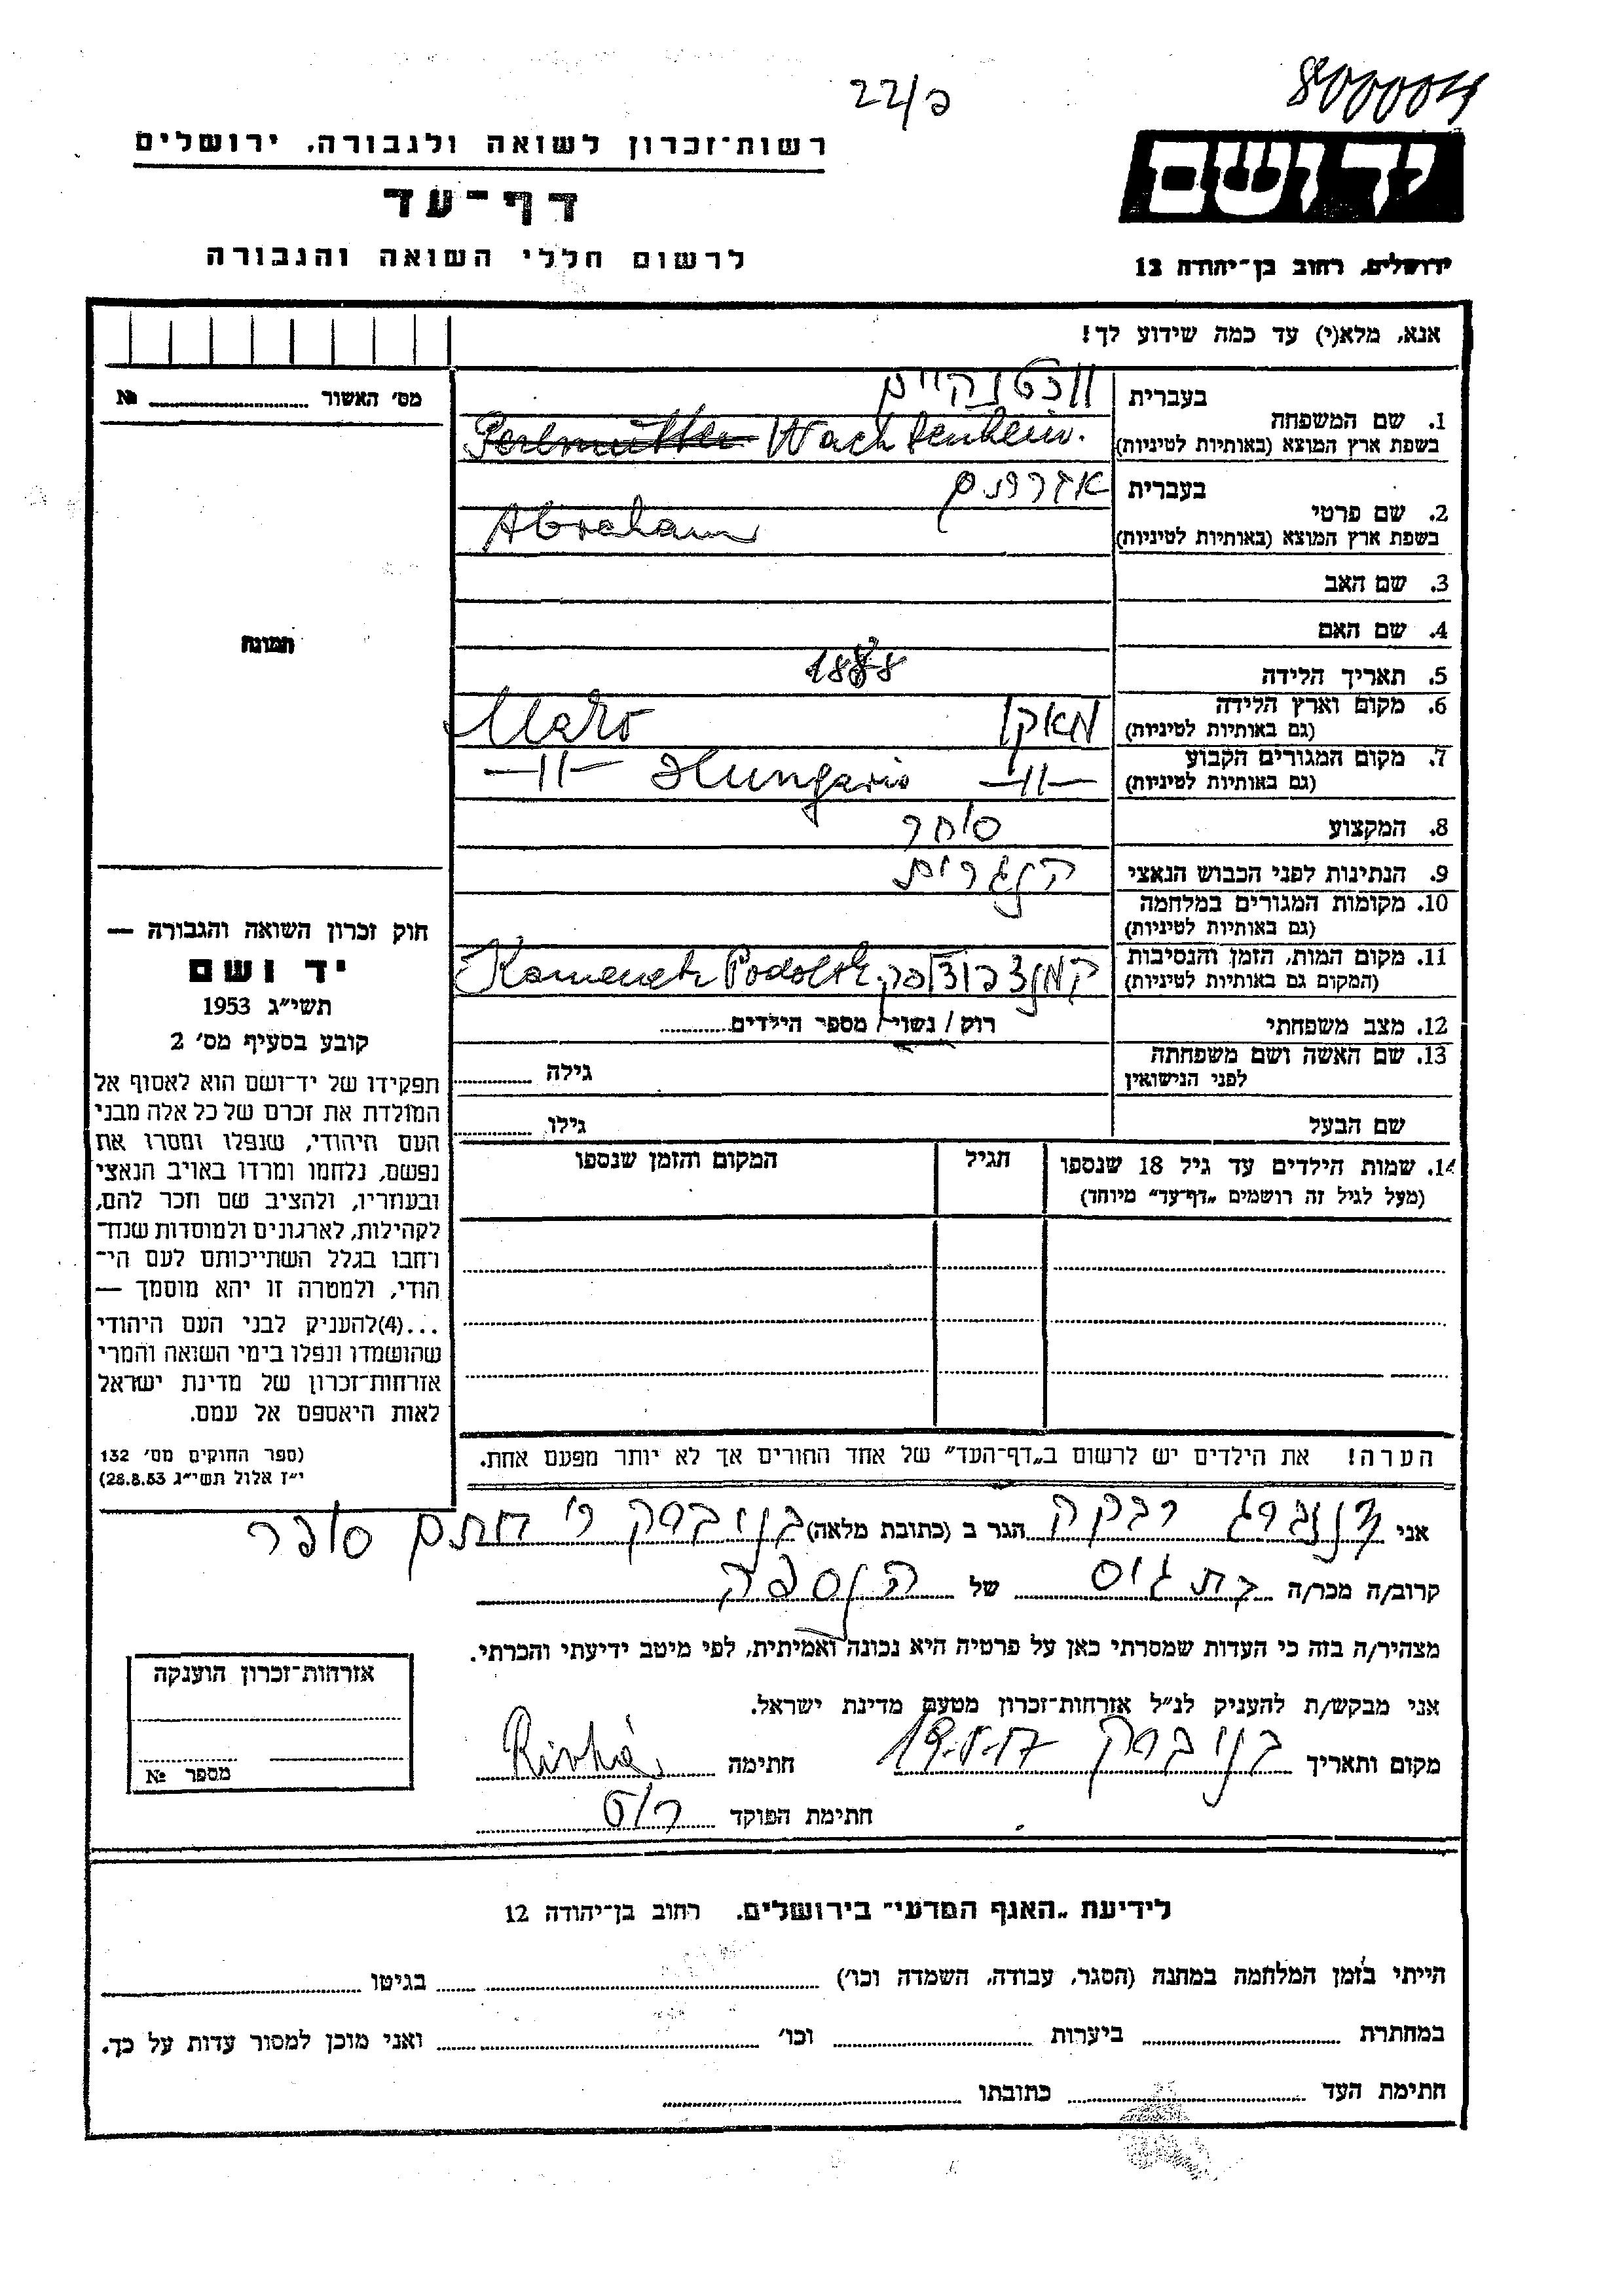 22/פ
רשות־זכרון לשואה ולגבורה, ירושלים
דף־עד
לרשום חללי השואה והגבורה
יד ושם
ירושלים, רחוב בן־יהודה 12
אנא, מלא(י) עד כמה שידוע לך!
מס׳ האשור № 
1. שם המשפחה
בעברית
בשפת ארץ המוצא (באותיות לטיניות) Perlmutter Wachtenheim.
2. שם פרטי
בעברית אברהם
בשפת ארץ המוצא (באותיות לטיניות) Abraham
3. שם האב
4. שם האם
תמונה
5. תאריך הלידה 1888
6. מקום וארץ הלידה
(גם באותיות לטיניות) מאקו Mako
7. מקום המגורים הקבוע
(גם באותיות לטיניות) —״— Hungaria —״—
8. המקצוע סוחר
9. הנתינות לפני הכבוש הנאצי הונגרית
10. מקומות המגורים במלחמה
(גם באותיות לטיניות)
11. מקום המות, הזמן והנסיבות
(המקום גם באותיות לטיניות) Kamenetz Podolsk
12. מצב משפחתי רוק / נשוי / מספר הילדים
13. שם האשה ושם משפחתה
לפני הנישואין גילה
שם הבעל גילו
14. שמות הילדים עד גיל 18 שנספו
(מעל לגיל זה רושמים „דף־עד״ מיוחד)
הגיל
המקום והזמן שנספו
חוק זכרון השואה והגבורה —
יד ושם
תשי״ג 1953
קובע בסעיף מס׳ 2
תפקידו של יד־ושם הוא לאסוף אל
המולדת את זכרם של כל אלה מבני
העם היהודי, שנפלו ומסרו את
נפשם, נלחמו ומרדו באויב הנאצי
ובעוזריו, ולהציב שם וזכר להם,
לקהילות, לארגונים ולמוסדות שנח־
רבו בגלל השתייכותם לעם הי־
הודי, ולמטרה זו יהא מוסמך —
...(4)להעניק לבני העם היהודי
שהושמדו ונפלו בימי השואה והמרי
אזרחות־זכרון של מדינת ישראל
לאות היאספם אל עמם.
(ספר החוקים מס׳ 132
י״ז אלול תשי״ג 28.8.53)
הערה! את הילדים יש לרשום ב„דף־העד״ של אחד ההורים אך לא יותר מפעם אחת.
אני רבקה הגר ב (כתובת מלאה) בני ברק ר׳ חתם סופר
קרוב/ה מכר/ה בת גיס של הנספה
מצהיר/ה בזה כי העדות שמסרתי כאן על פרטיה היא נכונה ואמיתית, לפי מיטב ידיעתי והכרתי.
אני מבקש/ת להעניק לנ״ל אזרחות־זכרון מטעם מדינת ישראל.
מקום ותאריך בני ברק חתימה Rivka
חתימת הפוקד
אזרחות־זכרון הוענקה
מספר №
לידיעת „האגף המדעי״ בירושלים, רחוב בן־יהודה 12
הייתי בזמן המלחמה במחנה (הסגר, עבודה, השמדה וכו׳) בגיטו
במחתרת ביערות וכו׳ ואני מוכן למסור עדות על כך.
חתימת העד כתובתו